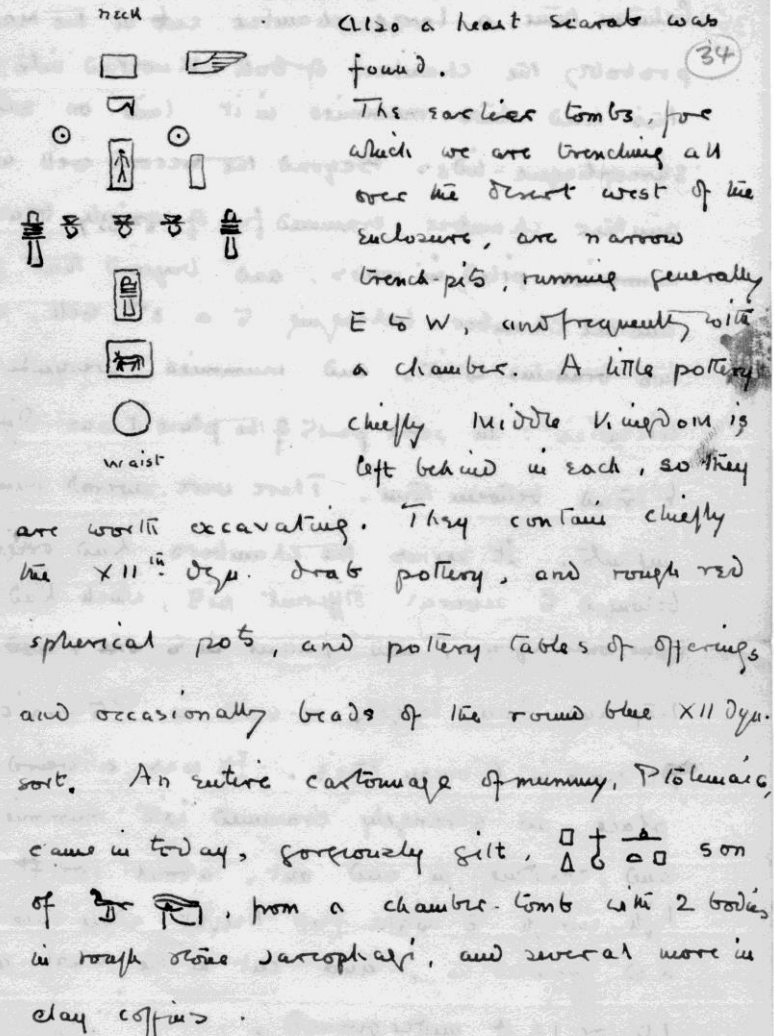 neck
Also a heart scarab was
34
found.
The earlier tombs, for
which we are trenching all
over the desert west of the
enclosure, are narrow
trench-pits, running generally
E to W, and frequently with
a chamber. A little pottery
chiefly Middle Kingdom is
waist
left behind in each, so they
are worth excavating. They contain chiefly
the XIIth Dyn. drab pottery, and rough red
spherical pots, and pottery tables of offerings
and occasionally beads of the round blue XII Dyn.
sort. An entire cartonnage of mummy, Ptolemaic,
came in today, gorgeously gilt, son
of , from a chamber-tomb with 2 bodies
in rough stone sarcophagi, and several more in
clay coffins.